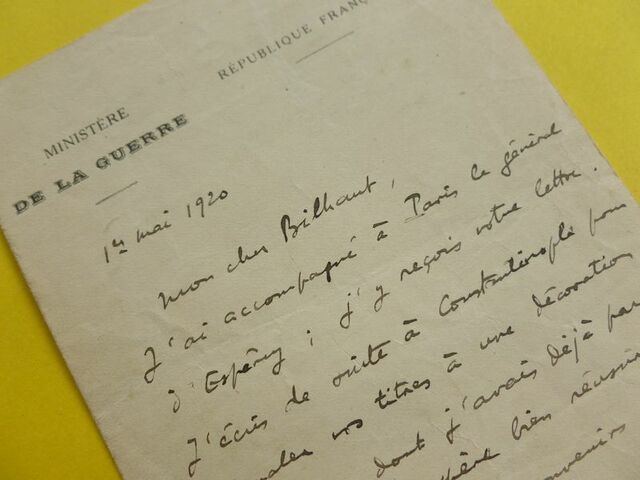 RÉPUBLIQUE FRANÇ
MINISTÈRE
DE LA GUERRE
1er mai 1920
Mon cher Bilhaut,
J'ai accompagné à Paris le général
d'Espérey ; j'y reçois votre lettre.
J'écris de suite à Constantinople pour
vos titres à une décoration
dont j'avais déjà par
bien réussir
souvenirs